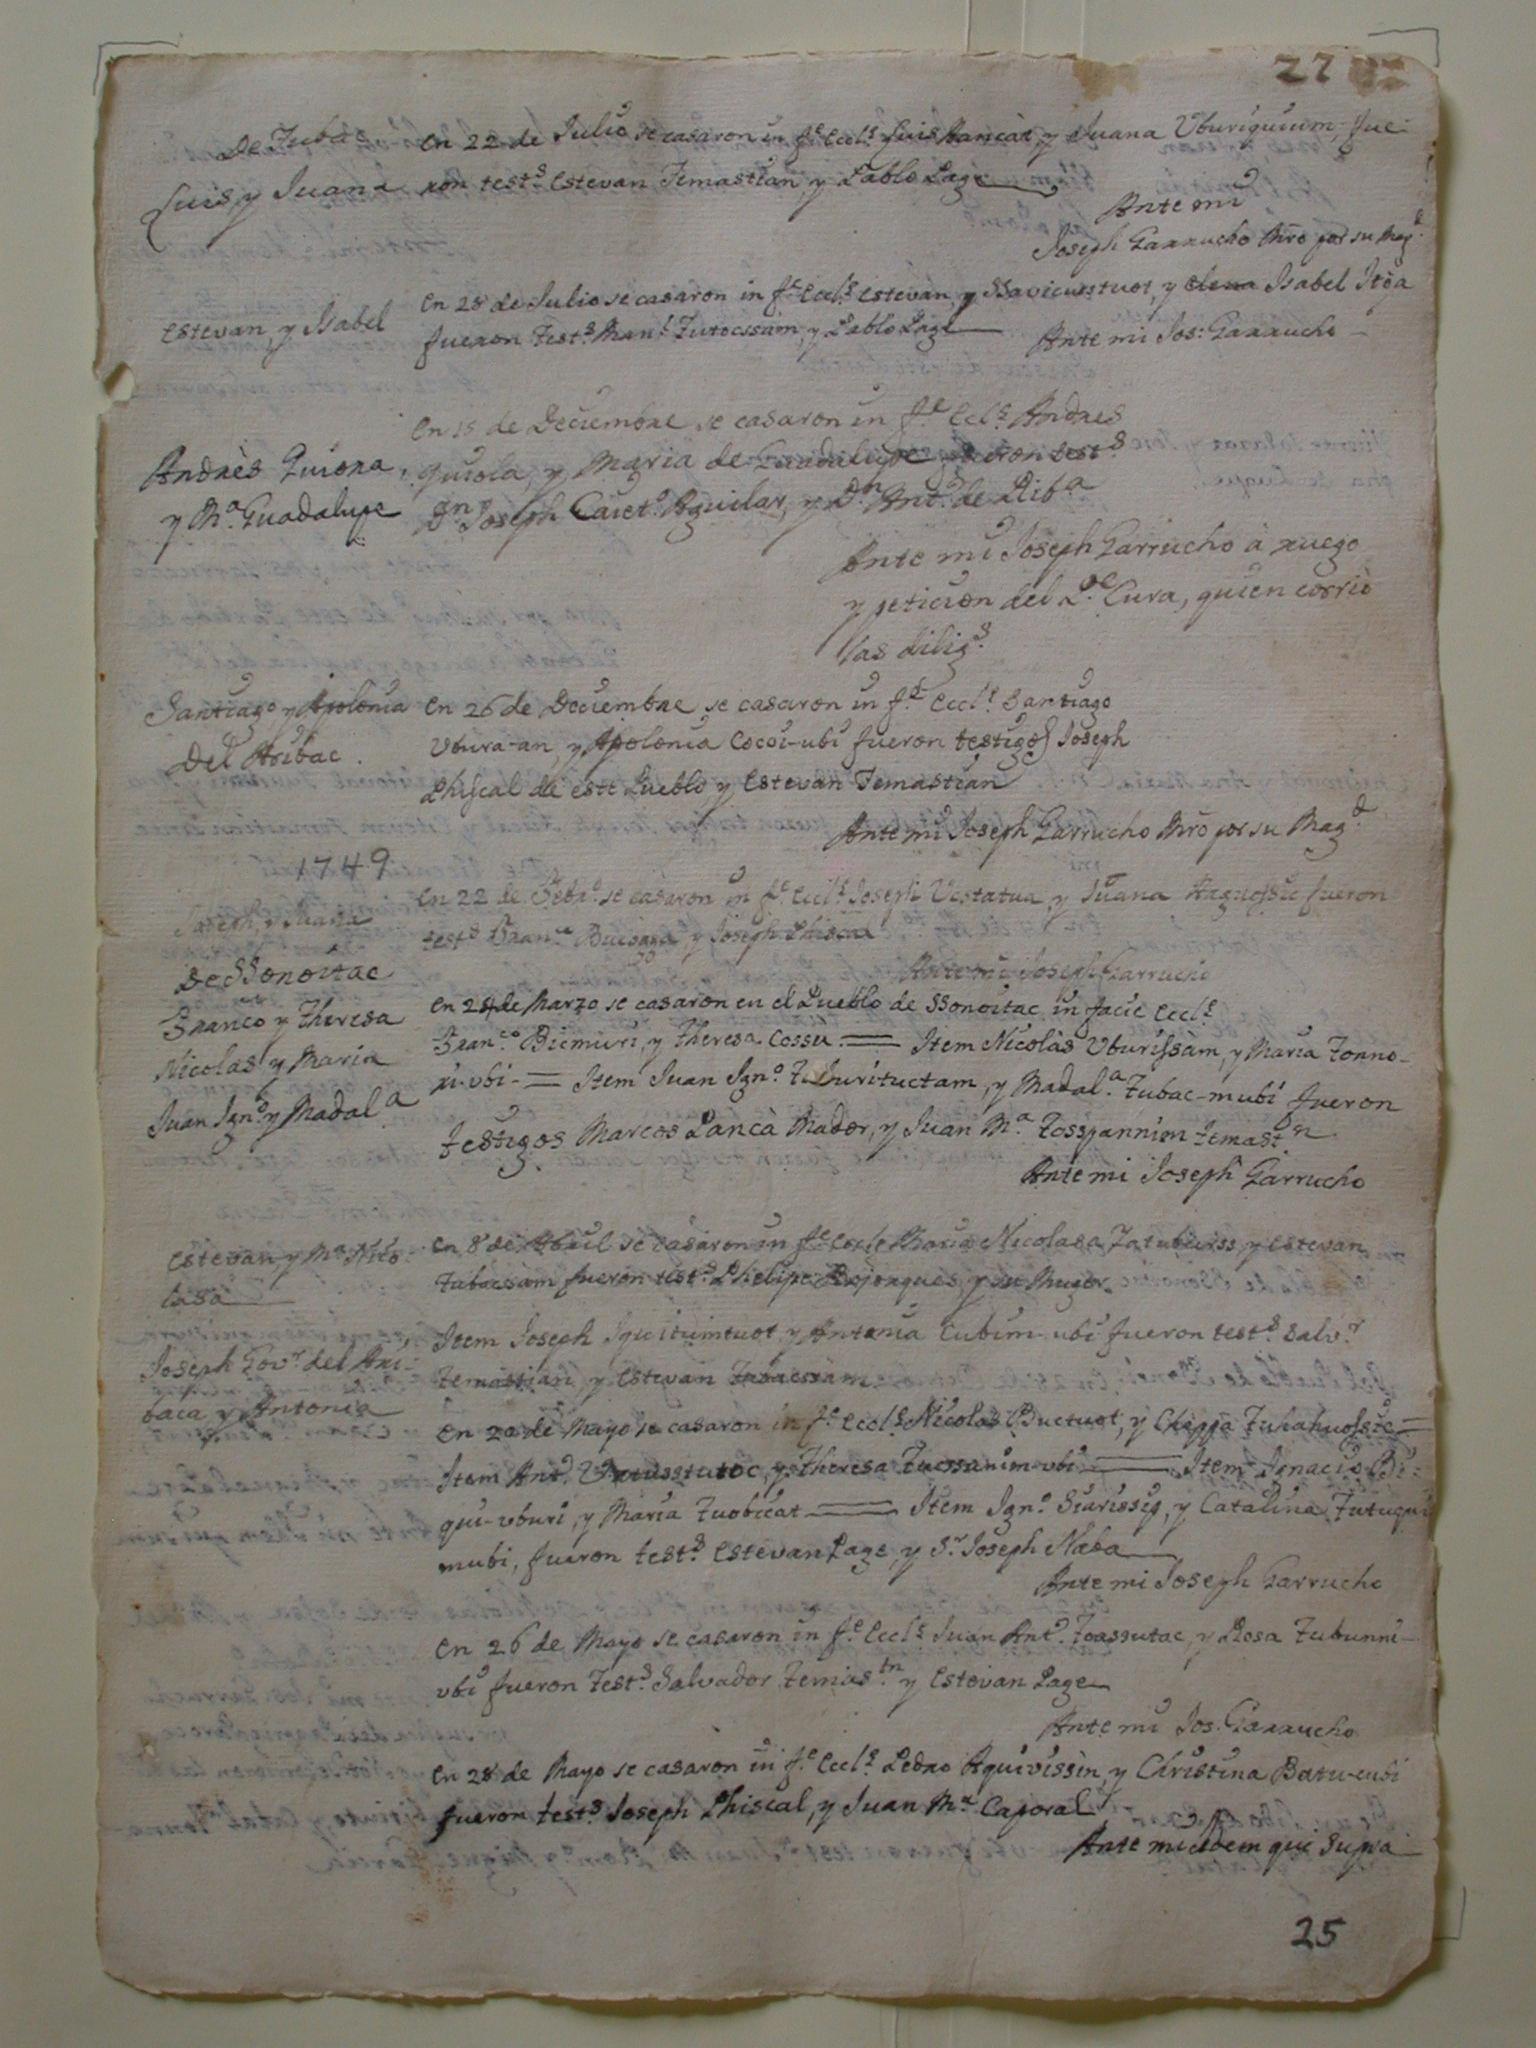 27
De Tubac
Luis, y Juana
En 22 de Julio se casaron in f.e Eccl.s Luis Hancàt, y Juana Vburiquium, fue-
ron test.s Estevan Temastian, y Pablo Page
Ante mi
Joseph Garrucho Mrõ por su Mag.d
Estevan, y Isabel
En 28 de Julio se casaron in f.e Eccl.s Estevan, y Isabel
fueron test.s Man.l Tutocssam, y Pablo Page
Ante mi Jos: Garrucho
Andrès Quiora,
y M.a Guadalupe
En 15 de Deciembre se casaron in f.e Ecl.s Andres
Quiola, y Maria de Guadalupe fueron test.s
D.n Joseph Caiet.o Aguilar, y D.n Ant.o de Rib.a
Ante mi Joseph Garrucho à ruego
y peticion del P.e Cura, quien corriò
las dilig.s
Santiago y Apolonia
Del Aribac.
En 26 de Deciembre se casaron in f.e Eccl.s Santiago
Vbura-an, y Apolonia Cocoi-ubi fueron testigos Joseph
Phiscal de este Pueblo, y Estevan Temastian
Ante mi Joseph Garrucho Mrõ por su Mag.d
1749
Joseph, y Juana
En 22 de Febr.o se casaron in f.e Eccl.s Joseph Vestatua, y Juana fueron
test.s Fran.co y Joseph Phiscal
Ante mi Joseph Garrucho
De Ssonoitac
Franco y Theresa
Nicolas y Maria
Juan Ign.o y Madal.a
En 28 de Marzo se casaron en el Pueblo de Ssonoitac in facie Eccl.s
Fran.co Biemiuri, y Theresa Cossu. = Item Nicolàs Vburissàm, y Maria Tonno-
xi-vbi = Item Juan Ign.o Tuburituctam, y Madal.a Tubac-mubi fueron
testigos Marcos Pancà Mador, y Juan M.a Tosspannim temast.n
Ante mi Joseph Garrucho
Estevan y M.a Nico-
lasa
En 8 de Abril se casaron in f.e Eccle Maria Nicolasa Tatuburss, y Estevan
Tubacsam fueron test.s Phelipe Bojorques, y su Muger.
Joseph Gov.r del Ari-
baca y Antonia
Item Joseph Iquituimtuot, y Antonia Cubim-ubi fueron test.s Salv.r
temastian, y Estevan Tabacssam
En 20 de Mayo se casaron in f.e Eccl.s Nicolas Buctuot, y Cheppa Tuhahuossic =
Item Ant.o y Theresa Tucssanim-vbi = Item Ignacio Bi-
qui-vburi, y Maria Tuobicat = Item Ign.o Siurissig, y Catalina Tutuqui
mubi, fueron test.s Estevan Page, y S.r Joseph Nava
Ante mi Joseph Garrucho
En 26 de Mayo se casaron in f.e Eccl.s Juan Ant.o Toassutac, y Rosa Tubunni-
vbi fueron test.s Salvador temas.tn y Estevan Page
Ante mi Jos. Garrucho
En 28 de Mayo se casaron in f.e Eccl.s Pedro Aquivissin, y Christina Batu-cubi
fueron test.s Joseph Phiscal, y Juan M.a Caporal
Ante mi idem qui supra
25